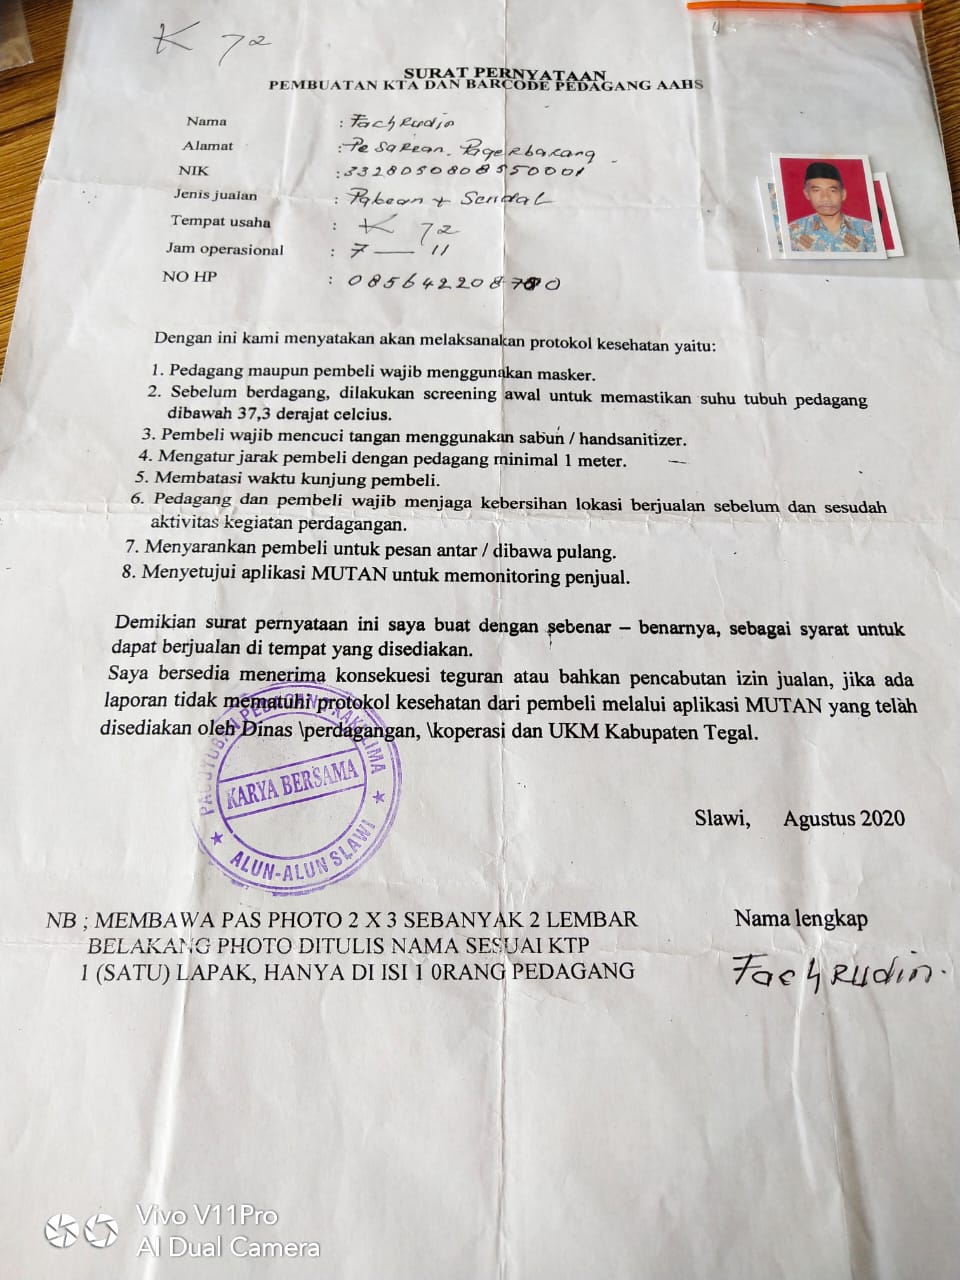 K 72
SURAT PERNYATAAN
PEMBUATAN KTA DAN BARCODE PEDAGANG AAHS
Nama : Fachrudin
Alamat : Pesarean. Pagerbarang.
NIK : 3328050808550001
Jenis jualan : Pakean + Sendal
Tempat usaha : K 72
Jam operasional : 7 — 11
NO HP : 085642208
Dengan ini kami menyatakan akan melaksanakan protokol kesehatan yaitu:
1. Pedagang maupun pembeli wajib menggunakan masker.
2. Sebelum berdagang, dilakukan screening awal untuk memastikan suhu tubuh pedagang
dibawah 37,3 derajat celcius.
3. Pembeli wajib mencuci tangan menggunakan sabun / handsanitizer.
4. Mengatur jarak pembeli dengan pedagang minimal 1 meter.
5. Membatasi waktu kunjung pembeli.
6. Pedagang dan pembeli wajib menjaga kebersihan lokasi berjualan sebelum dan sesudah
aktivitas kegiatan perdagangan.
7. Menyarankan pembeli untuk pesan antar / dibawa pulang.
8. Menyetujui aplikasi MUTAN untuk memonitoring penjual.
Demikian surat pernyataan ini saya buat dengan sebenar – benarnya, sebagai syarat untuk
dapat berjualan di tempat yang disediakan.
Saya bersedia menerima konsekuesi teguran atau bahkan pencabutan izin jualan, jika ada
laporan tidak mematuhi protokol kesehatan dari pembeli melalui aplikasi MUTAN yang telah
disediakan oleh Dinas \perdagangan, \koperasi dan UKM Kabupaten Tegal.
PAGUYUBAN PEDAGANG KAKILIMA
KARYA BERSAMA
ALUN-ALUN SLAWI
Slawi, Agustus 2020
NB ; MEMBAWA PAS PHOTO 2 X 3 SEBANYAK 2 LEMBAR
BELAKANG PHOTO DITULIS NAMA SESUAI KTP
1 (SATU) LAPAK, HANYA DI ISI 1 0RANG PEDAGANG
Nama lengkap
Fachrudin.
Vivo V11Pro
AI Dual Camera